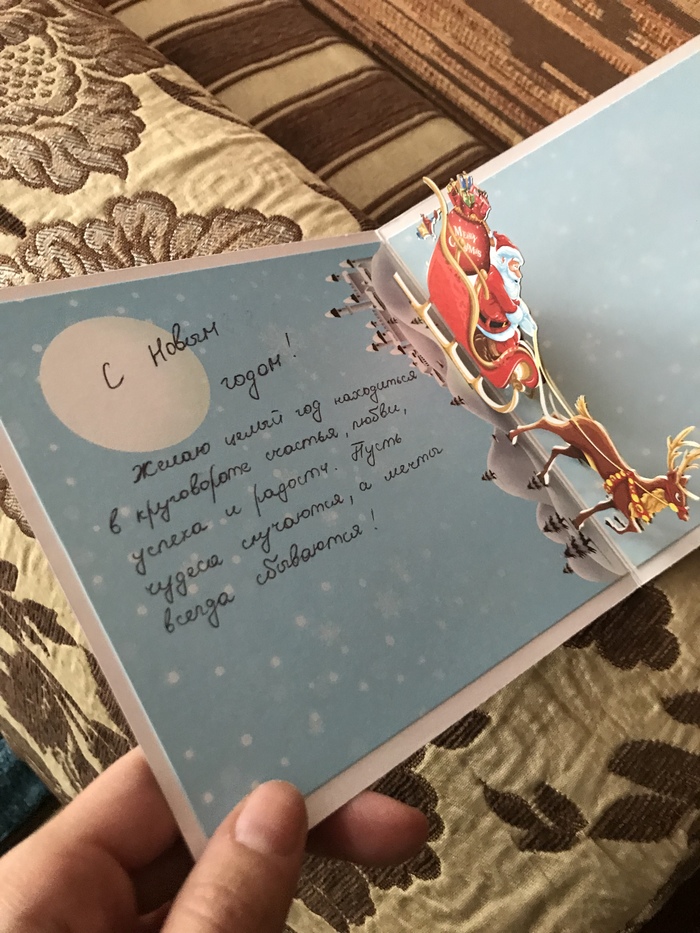 С Новым
годом!
Желаю целый год находиться
в круговороте счастья, любви,
успеха и радости. Пусть
чудеса случаются, а мечты
всегда сбываются!
MERRY
CHRISTMAS